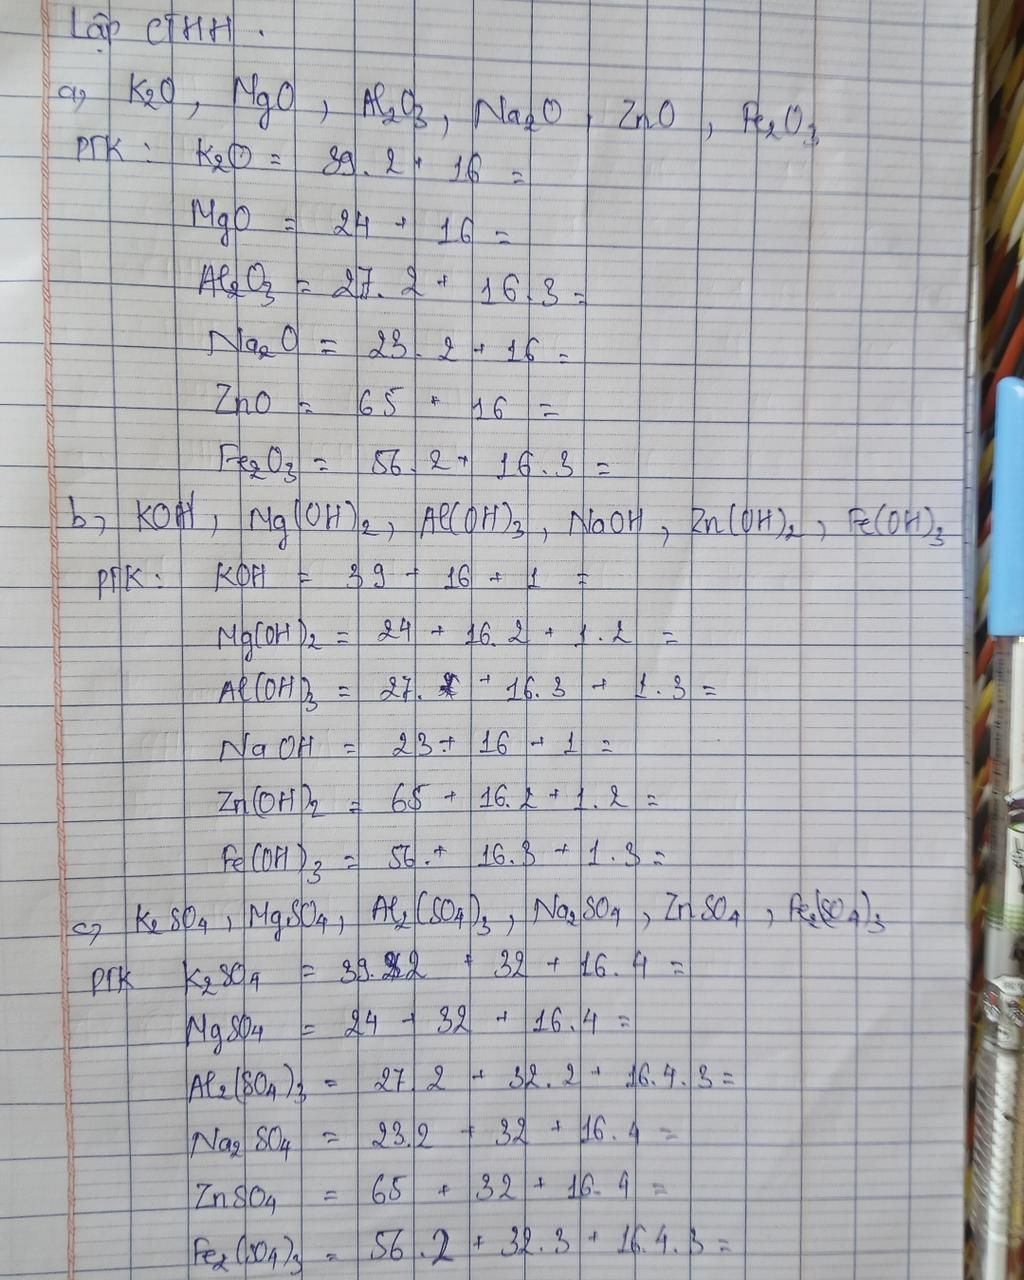 Lập CTHH .
a, K₂O , MgO , Al₂O₃ , Na₂O , ZnO , Fe₂O₃
PTK : K₂O = 39 . 2 + 16 =
MgO = 24 + 16 =
Al₂O₃ = 27 . 2 + 16 . 3 =
Na₂O = 23 . 2 + 16 =
ZnO = 65 + 16 =
Fe₂O₃ = 56 . 2 + 16 . 3 =
b, KOH , Mg(OH)₂ , Al(OH)₃ , NaOH , Zn(OH)₂ , Fe(OH)₃
PTK : KOH = 39 + 16 + 1 =
Mg(OH)₂ = 24 + 16 . 2 + 1 . 2 =
Al(OH)₃ = 27 . + 16 . 3 + 1 . 3 =
NaOH = 23 + 16 + 1 =
Zn(OH)₂ = 65 + 16 . 2 + 1 . 2 =
Fe(OH)₃ = 56 . + 16 . 3 + 1 . 3 =
c, K₂SO₄ , MgSO₄ , Al₂(SO₄)₃ , Na₂SO₄ , ZnSO₄ , Fe₂(SO₄)₃
PTK K₂SO₄ = 39 . 2 + 32 + 16 . 4 =
MgSO₄ = 24 + 32 + 16 . 4 =
Al₂(SO₄)₃ = 27 . 2 + 32 . 2 + 16 . 4 . 3 =
Na₂SO₄ = 23 . 2 + 32 + 16 . 4 =
ZnSO₄ = 65 + 32 + 16 . 4 =
Fe₂(SO₄)₃ = 56 . 2 + 32 . 3 + 16 . 4 . 3 =